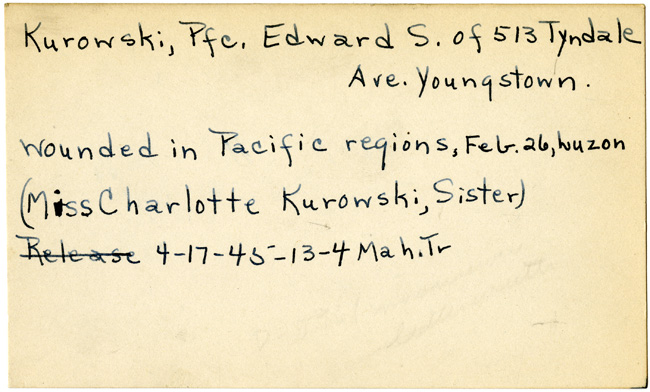 Kurowski, Pfc. Edward S. of 513 Tyndale
Ave. Youngstown.
wounded in Pacific regions, Feb. 26, Luzon
(Miss Charlotte Kurowski, Sister)
Release 4-17-45-13-4 Mah. Tr